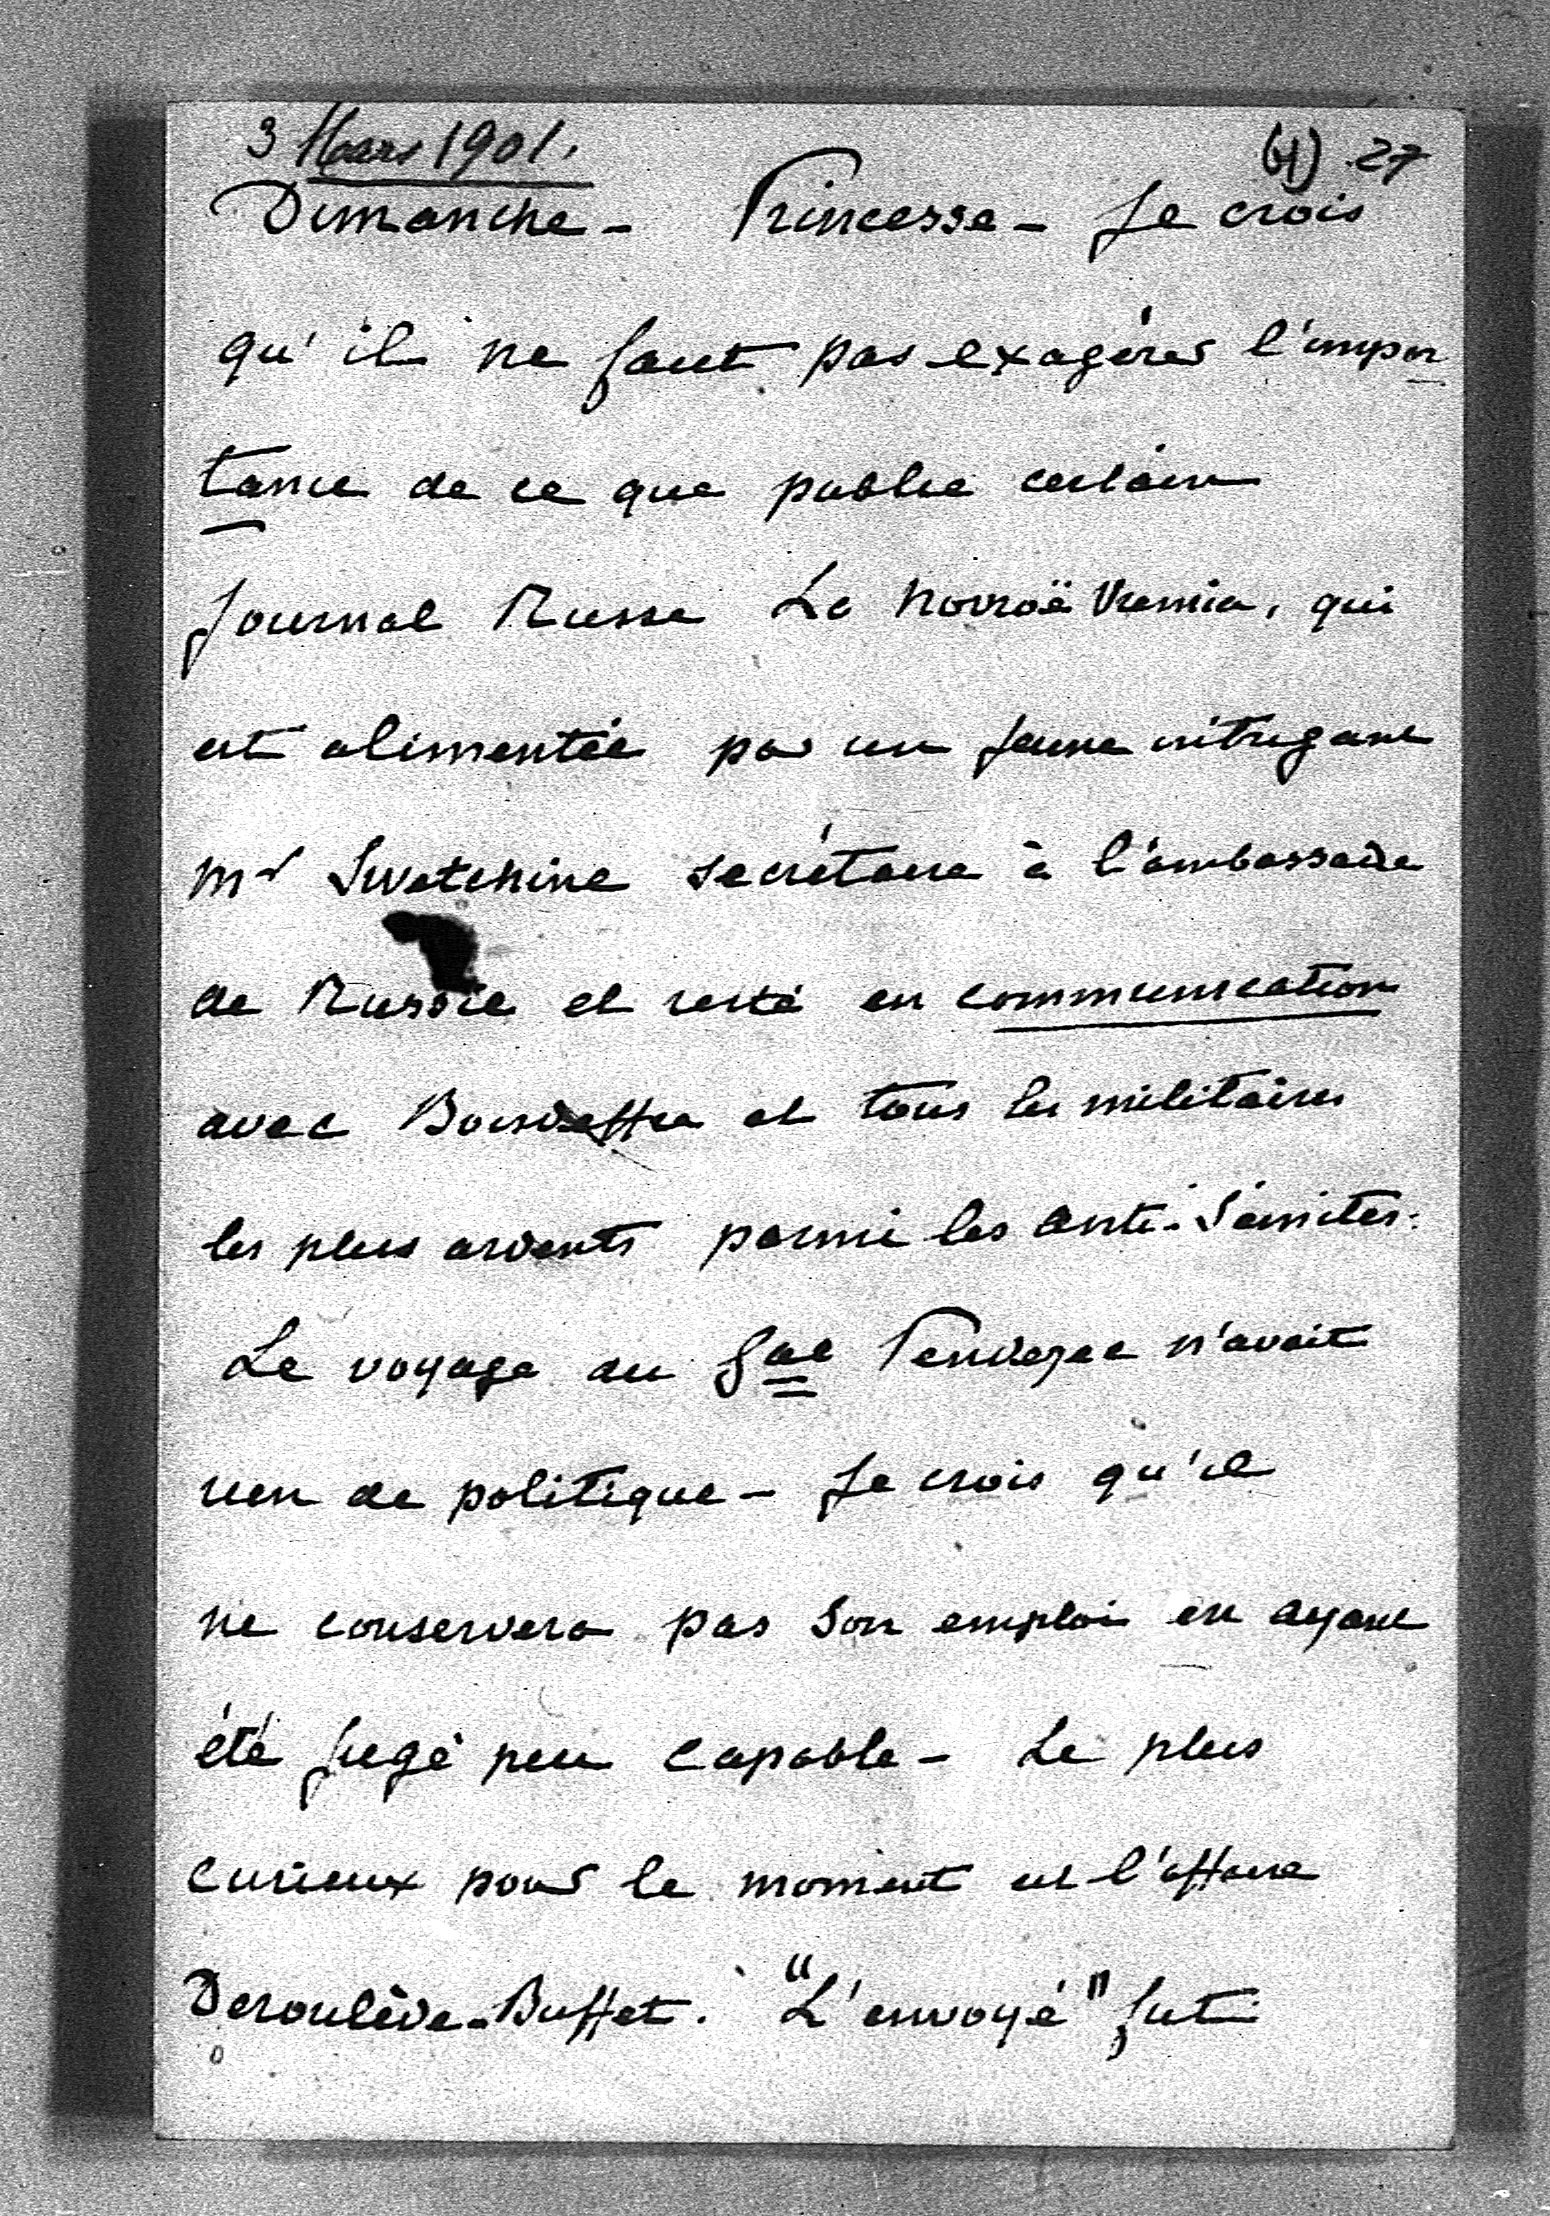 3 Mars 1901. (4) 27
Dimanche - Princesse - Je crois
qu'il ne faut pas exagérer l'impor
tance de ce que publie certain
journal Russe Le Novoë Vremia, qui
est alimentée par un jeune intrigant
Mr Swetchine secrétaire à l'ambassade
de Russie et resté en communication
avec Boisdeffre et tous les militaires
les plus ardents parmi les anti-Sémites.
Le voyage du Gal Pendezec n'avait
rien de politique - Je crois qu'il
ne conservera pas son emploi en ayant
été jugé peu capable - Le plus
curieux pour le moment est l'affaire
Deroulède-Buffet. "L'envoyé" fut